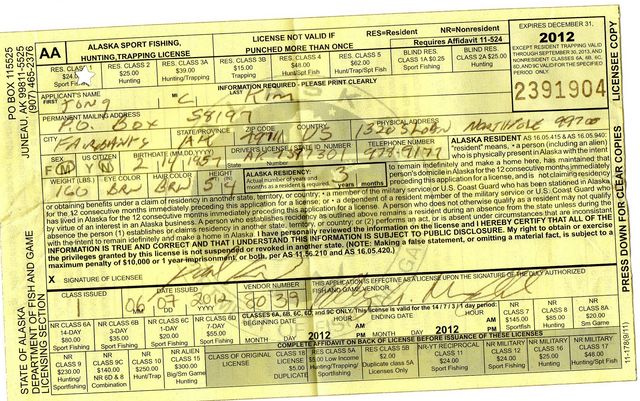 AA
ALASKA SPORT FISHING,
HUNTING, TRAPPING LICENSE
LICENSE NOT VALID IF
PUNCHED MORE THAN ONCE
RES=Resident NR=Nonresident
Requires Affidavit 11-524
EXPIRES DECEMBER 31,
2012
EXCEPT RESIDENT TRAPPING VALID
THROUGH SEPTEMBER 30, 2013, AND
NONRESIDENT CLASSES 6A, 6B, 6C,
6D, AND 9C VALID FOR THE SPECIFIED
PERIOD ONLY
2391904
LICENSEE COPY
PRESS DOWN FOR CLEAR COPIES
11-178(9/11)
PO BOX 115525
JUNEAU, AK 99811-5525
(907) 465-2376
STATE OF ALASKA
DEPARTMENT OF FISH AND GAME
LICENSING SECTION
RES. CLASS 1
$24.
Sport Fish
RES. CLASS 2
$25.00
Hunting
RES. CLASS 3A
$39.00
Hunting/Trapping
RES. CLASS 3B
$15.00
Trapping
RES. CLASS 4
$48.00
Hunt/Spt Fish
RES. CLASS 5
$62.00
Hunt/Trap/Spt Fish
BLIND RES.
CLASS 1A $0.25
Sport Fishing
BLIND RES.
CLASS 2A $25.00
Hunting
INFORMATION REQUIRED - PLEASE PRINT CLEARLY
APPLICANT'S NAME
FIRST Jong MI C LAST Kim
PERMANENT MAILING ADDRESS
P.O. Box 58197
CITY Fairbanks STATE/PROVINCE AK ZIP CODE COUNTRY US
PHYSICAL ADDRESS North Pole 99700
SEX F M US CITIZEN Y N BIRTHDATE (MM/DD/YYYY) 2 14 1957
DRIVER'S LICENSE/STATE ID NUMBER
State AK Number
TELEPHONE NUMBER
WEIGHT (LBS.) 160 EYES BRN HAIR BRN HEIGHT 5 4
ALASKA RESIDENCY:
Actual number of years and months as a resident is required. 3 years months
ALASKA RESIDENT AS 16.05.415 & AS 16.05.940:
"resident" means, • a person (including an alien)
who is physically present in Alaska with the intent
to remain indefinitely and make a home here, has maintained that
person's domicile in Alaska for the 12 consecutive months immediately
preceding this application for a license, and is not claiming residency
or obtaining benefits under a claim of residency in another state, territory, or country; • a member of the military service or U.S. Coast Guard who has been stationed in Alaska
for the 12 consecutive months immediately preceding this application for a license; or • a dependent of a resident member of the military service or U.S. Coast Guard who
has lived in Alaska for the 12 consecutive months immediately preceding this application for a license. A person who does not otherwise qualify as a resident may not qualify
by virtue of an interest in an Alaska business. A person who establishes residency as outlined above remains a resident during an absence from the state unless during the
absence the person (1) establishes or claims residency in another state, territory, or country; or (2) performs an act, or is absent under circumstances that are inconsistent
with the intent to remain indefinitely and make a home in Alaska. I have personally reviewed the information on the license and I HEREBY CERTIFY THAT ALL OF THE
INFORMATION IS TRUE AND CORRECT AND THAT I UNDERSTAND THIS INFORMATION IS SUBJECT TO PUBLIC DISCLOSURE. My right to obtain or exercise
the privileges granted by this license is not suspended or revoked in another state. (NOTE: Making a false statement, or omitting a material fact, is subject to a
maximum penalty of $10,000 or 1 year imprisonment, or both, per AS 11.56.210 and AS 16.05.420.)
X SIGNATURE OF LICENSEE
THIS APPLICATION IS EFFECTIVE AS A LICENSE UPON THE SIGNATURE OF THE DULY AUTHORIZED
FISH AND GAME VENDOR.
CLASS ISSUED DATE ISSUED 06 07 2012 VENDOR NUMBER 8039
MM DD YYYY
CLASSES 6A, 6B, 6C, 6D, and 9C ONLY: This license is valid for the 14 / 7 / 3 / 1 day period:
BEGINNING DATE HOUR AM PM ENDING DATE HOUR AM PM
MONTH DAY 2012 MONTH DAY 2012
NR CLASS 6A
14-DAY
$80.00
Sport Fishing
NR CLASS 6B
3-DAY
$35.00
Sport Fishing
NR CLASS 6C
1-DAY
$20.00
Sport Fishing
NR CLASS 6D
7-DAY
$55.00
NR
CLASS 7
$145.00
Sportfish
NR
CLASS 8
$85.00
Hunting
NR
CLASS 8A
$20.00
Sm Game
COMPLETE AFFIDAVIT ON BACK OF LICENSE BEFORE ISSUANCE OF THESE LICENSES
NR
CLASS 9
$230.00
Hunting/
Sportfishing
NR
CLASS 9C
$140.00
NR 6D & 8
Combination
NR
CLASS 10
$250.00
Hunt/Trap
NR ALIEN
CLASS 15
$300.00
Big/Sm Game
Hunting
CLASS OF ORIGINAL
LICENSE
DUPLICATE
CLASS 18
$5.00
RES CLASS 5A
$5.00 Low Income
Hunting/Trapping
Sportfishing
RES CLASS 5B
$2.00
Duplicate class 5A
Licenses Only
NR-YT RECIPROCAL
CLASS 11
$24.00
Sport Fishing
NR MILITARY
CLASS 12
$24.00
Sport Fishing
NR MILITARY
CLASS 16
$25.00
Hunting
NR MILITARY
CLASS 17
$48.00
Hunting/
Sport Fish